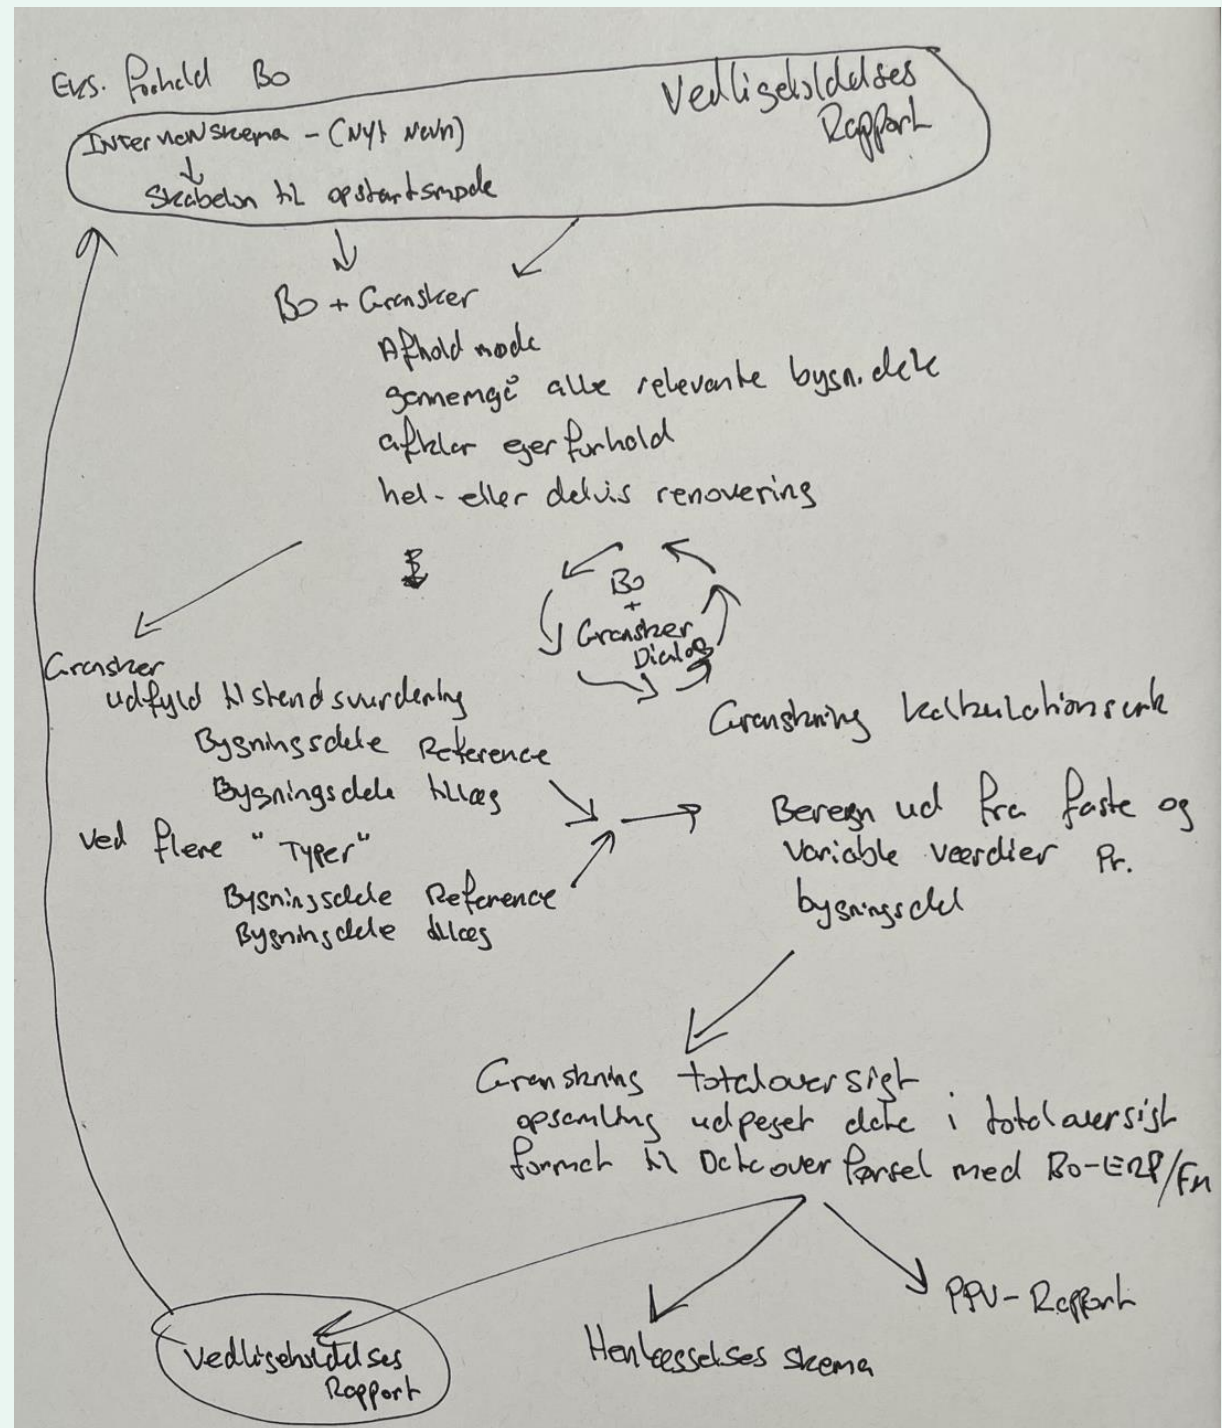 Eks. forhold Bo
Vedligeholdelses
Rapport
Interviewskema - (Nyt Navn)
Skabelon til opstartsmøde
Bo + Gransker
Afhold møde
gennemgå alle relevante bygn. dele
afklar ejerforhold
hel- eller delvis renovering
Bo
+
Gransker
Dialog
Gransker
udfyld tilstandsvurdering
Bygningsdele Reference
Bygningsdele tillæg
Ved flere "Typer"
Bygningsdele Reference
Bygningsdele tillæg
Granskning kalkulationsark
Beregn ud fra faste og
variable værdier Pr.
bygningsdel
Granskning totaloversigt
opsamling udpeget data i totaloversigt
format til Dataoverførsel med Bo-ERP/FM
Vedligeholdelses
Rapport
Henlæggelses skema
PPV-Rapport